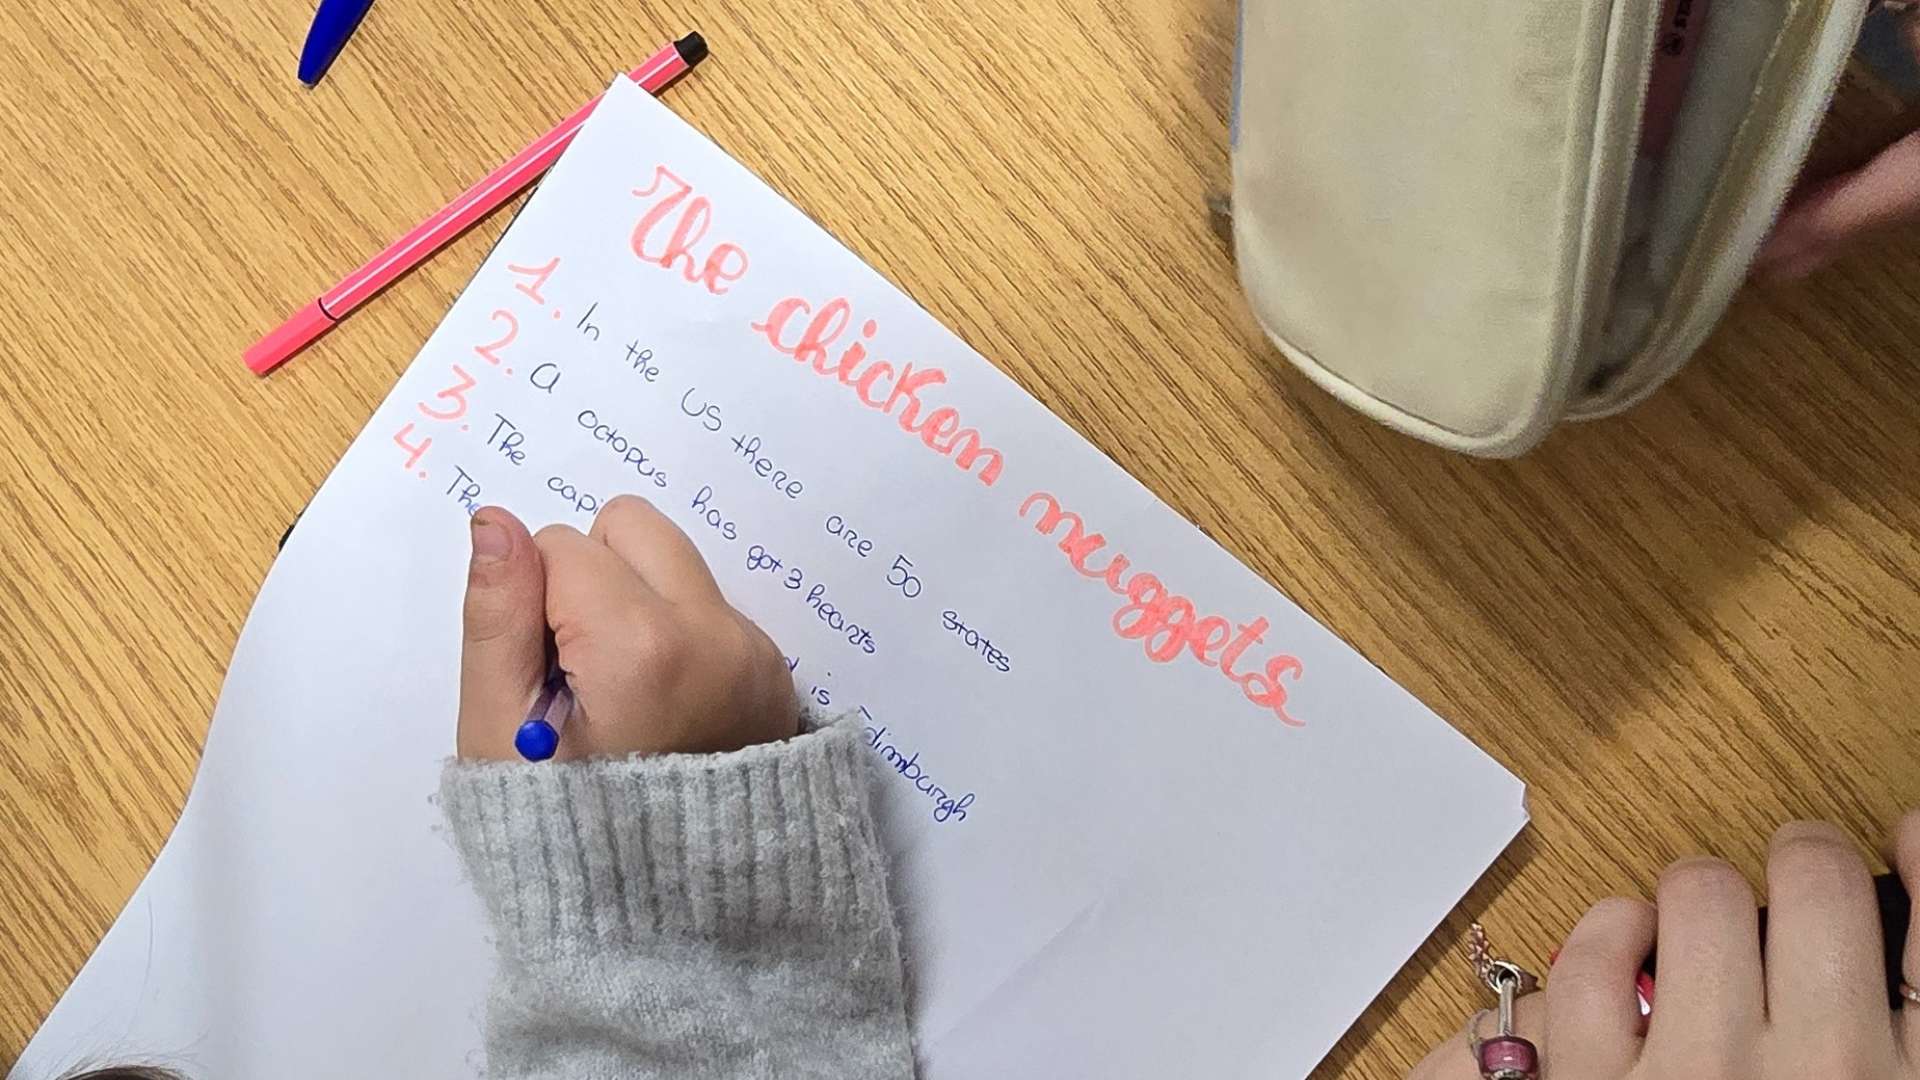 The chicken nuggets
1. In the US there are 50 states
2. A octopus has got 3 hearts
3. The is Edimburgh
4. The